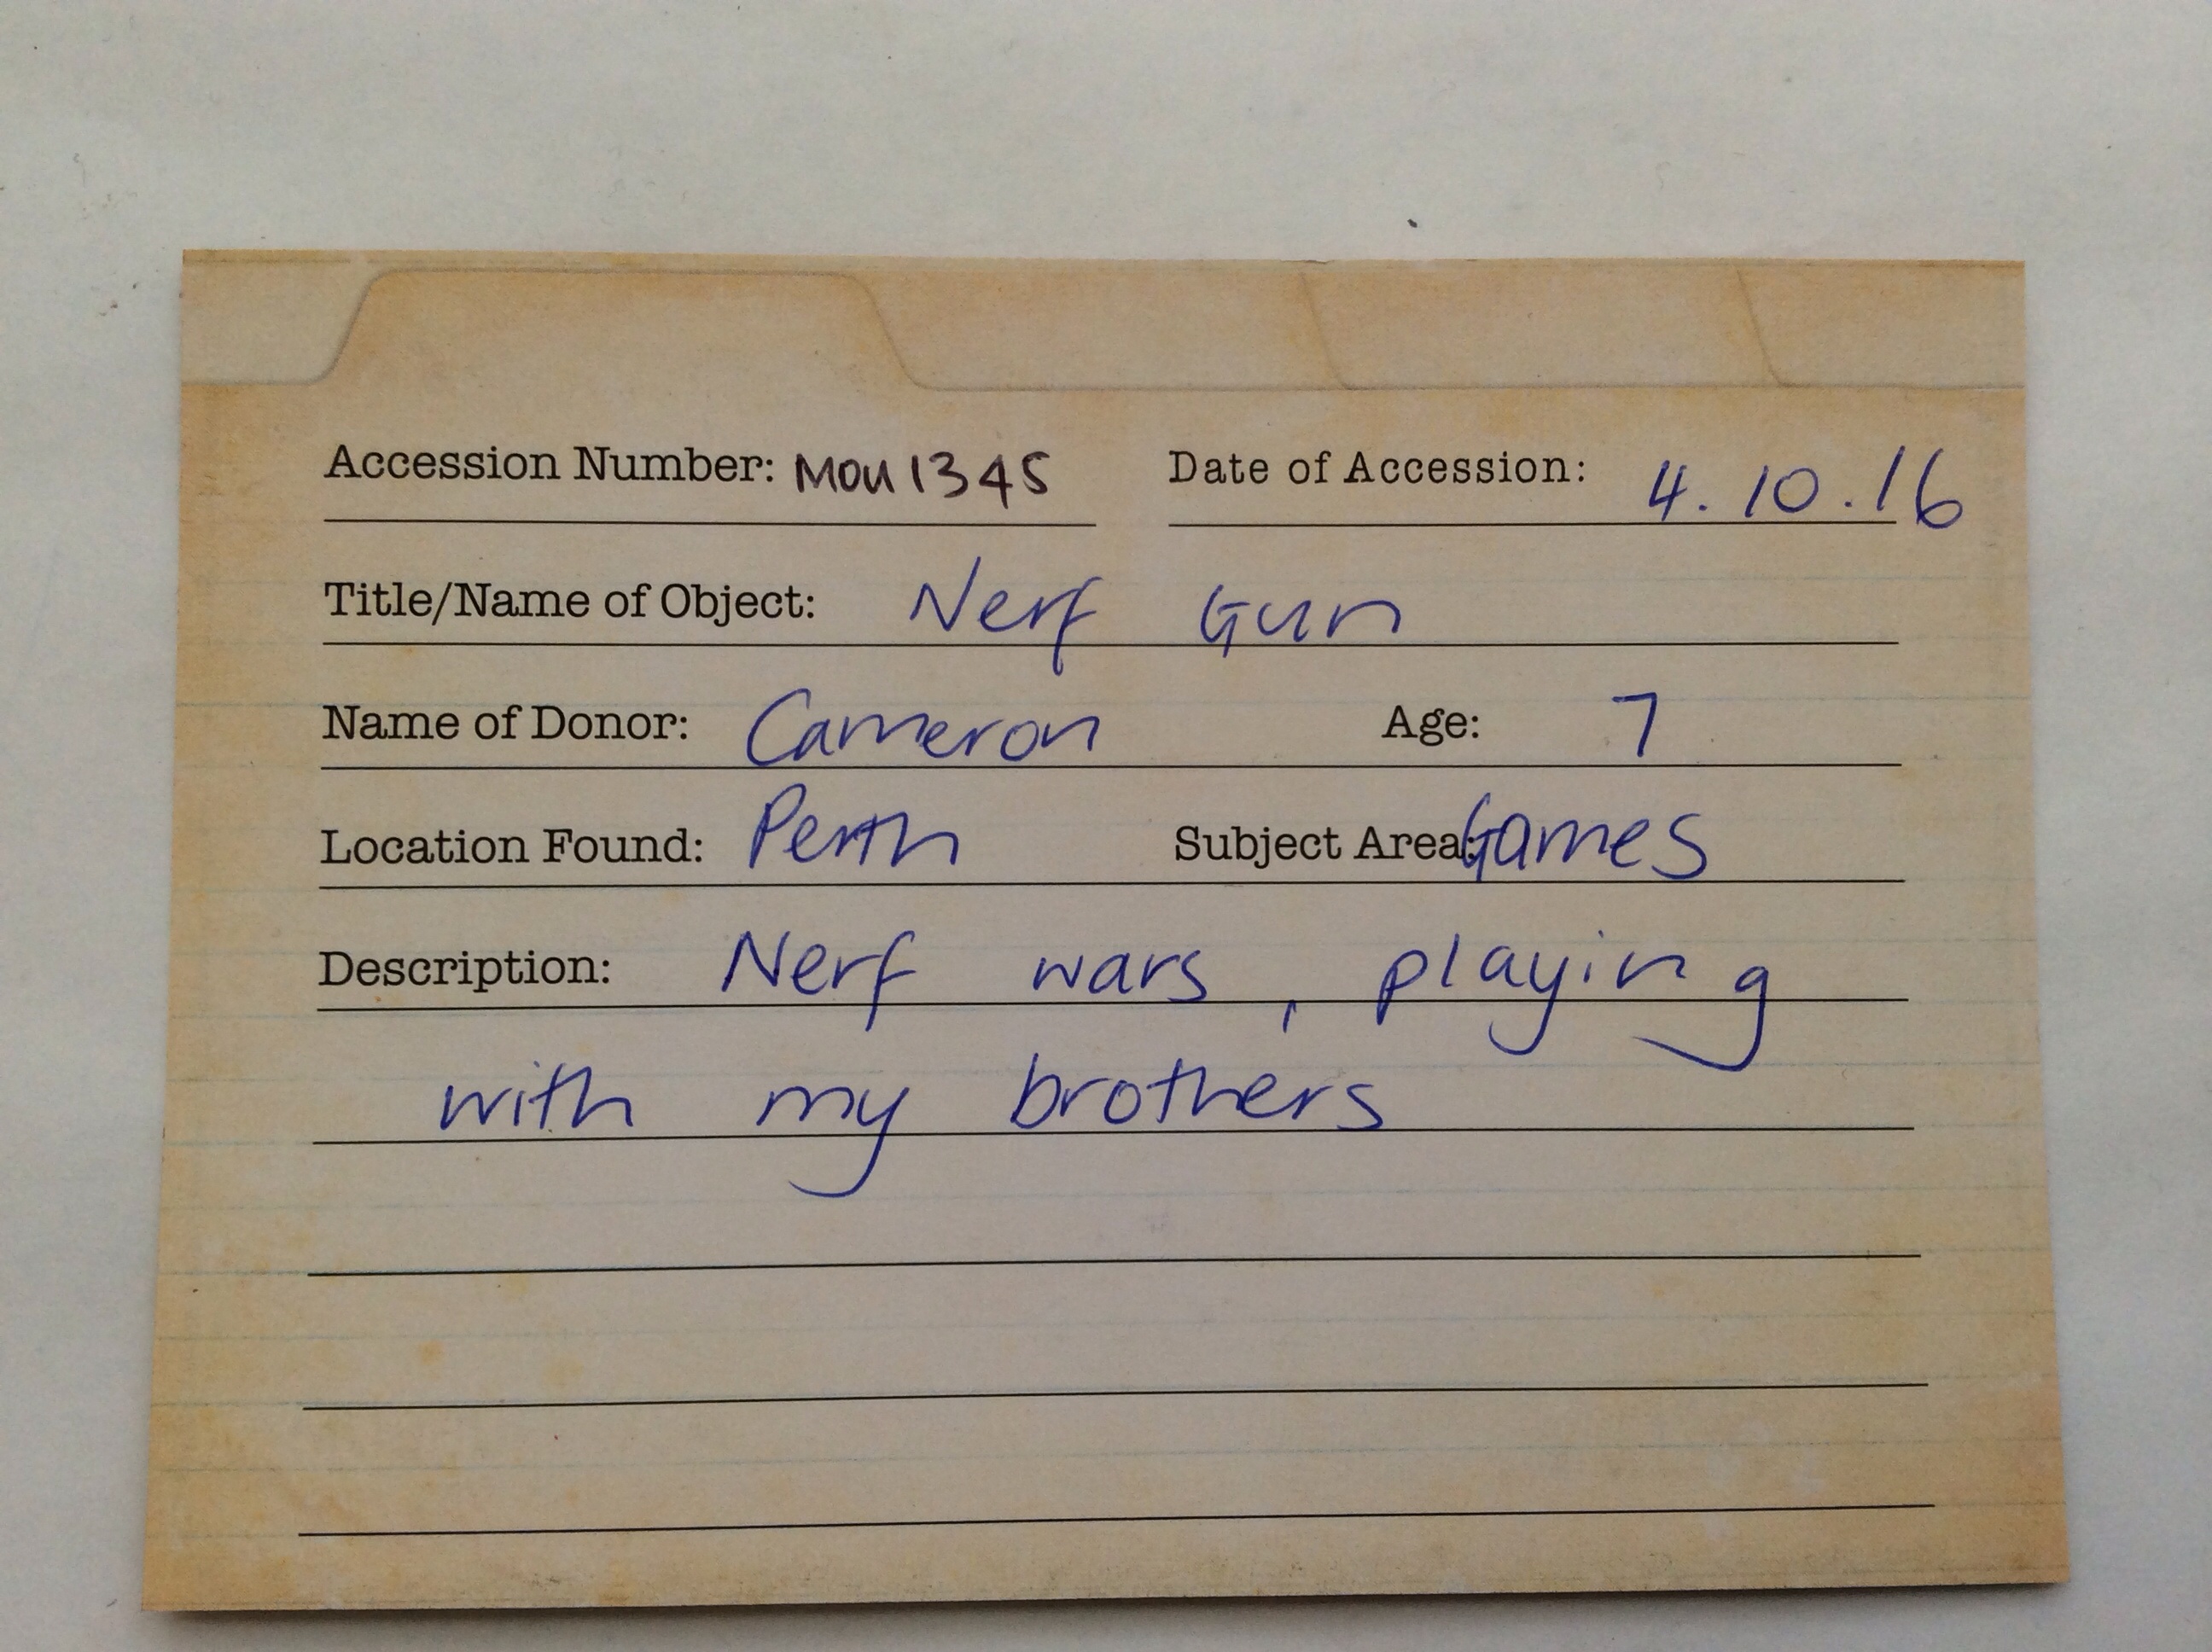 Accession Number: MOU1345 Date of Accession: 4.10.16
Title/Name of Object: Nerf Gun
Name of Donor: Cameron Age: 7
Location Found: Perth Subject Area: Games
Description: Nerf wars, playing
with my brothers